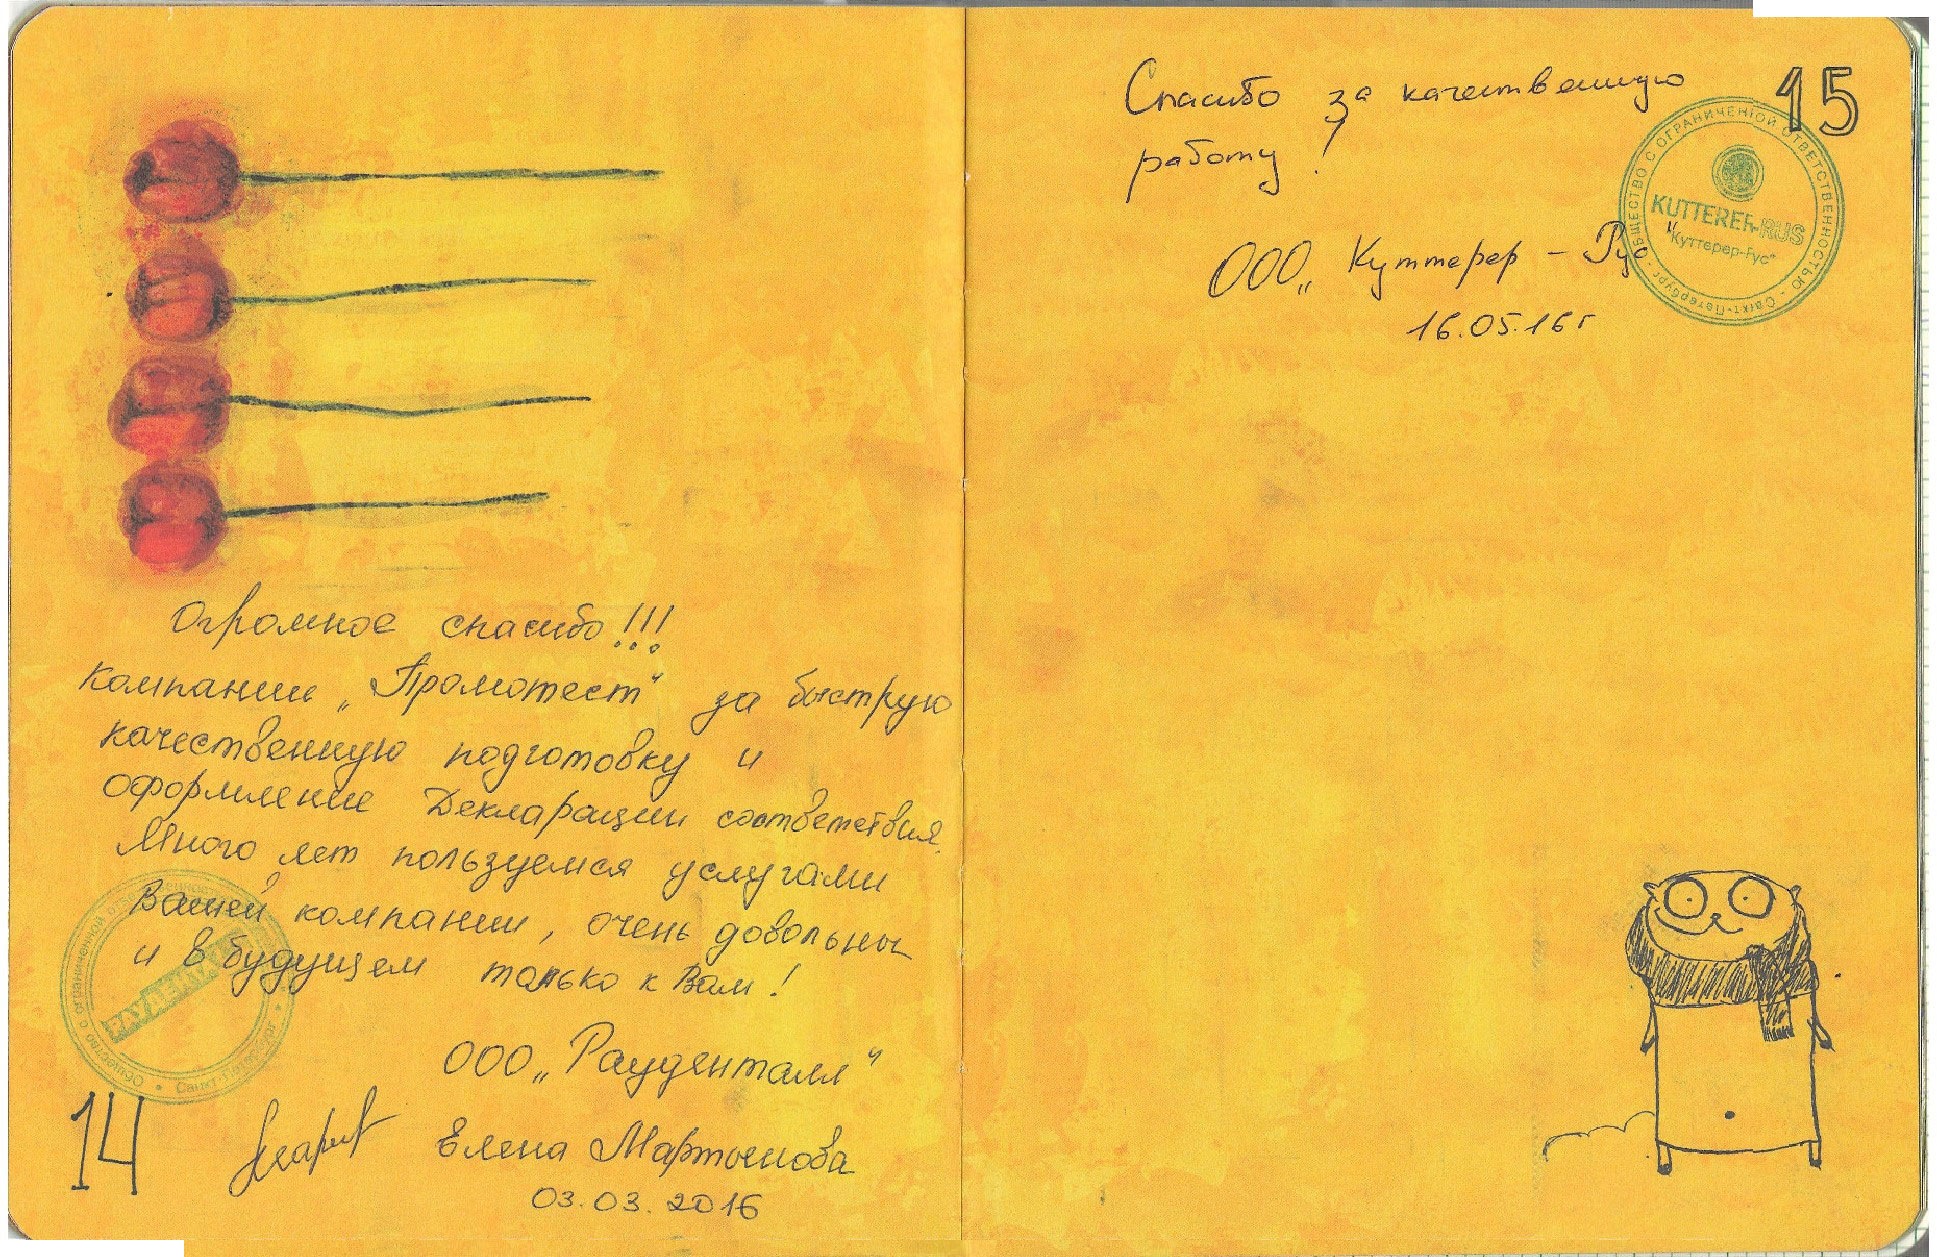 Огромное спасибо!!!
Компании „Промотест" за быструю
качественную подготовку и
оформление Декларации соответствия.
Много лет пользуемся услугами
Вашей компании, очень довольны
и в будущем только к Вам!
ООО „Рауденталл"
Елена Мартынова
03.03.2016
Общество с ограниченной ответственностью
Санкт-Петербург
14
Спасибо за качественную
работу!
ООО „Куттерер - Рус"
16.05.16г
15
ОБЩЕСТВО С ОГРАНИЧЕННОЙ ОТВЕТСТВЕННОСТЬЮ
KUTTERER-RUS
"Куттерер-Рус"
Санкт-Петербург